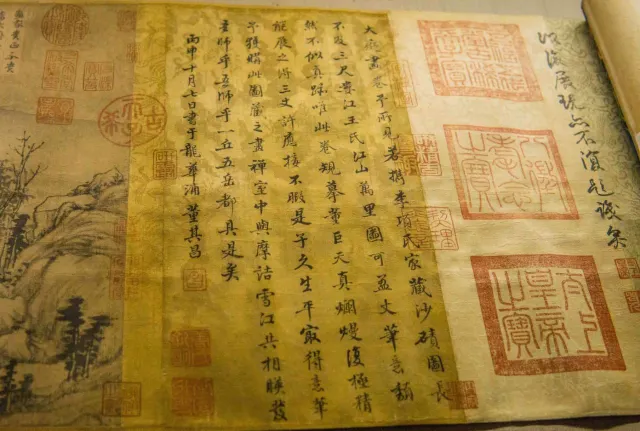 以後展玩亦不復題識矣
八徵耄念之寶
太上皇帝之寶
大癡畫卷予所見若檇李項氏家藏沙磧圖長
不及三尺婁江王氏江山萬里圖可盈丈筆意頹
然不似真蹟唯此卷規摹董巨天真爛熳復極精
能展之得三丈許應接不暇是子久生平最得意筆
予獲購此圖藏之畫禪室中與摩詰雪江共相映發
吾師乎吾師乎一丘五岳都具是矣
丙申十月七日書于龍華浦董其昌